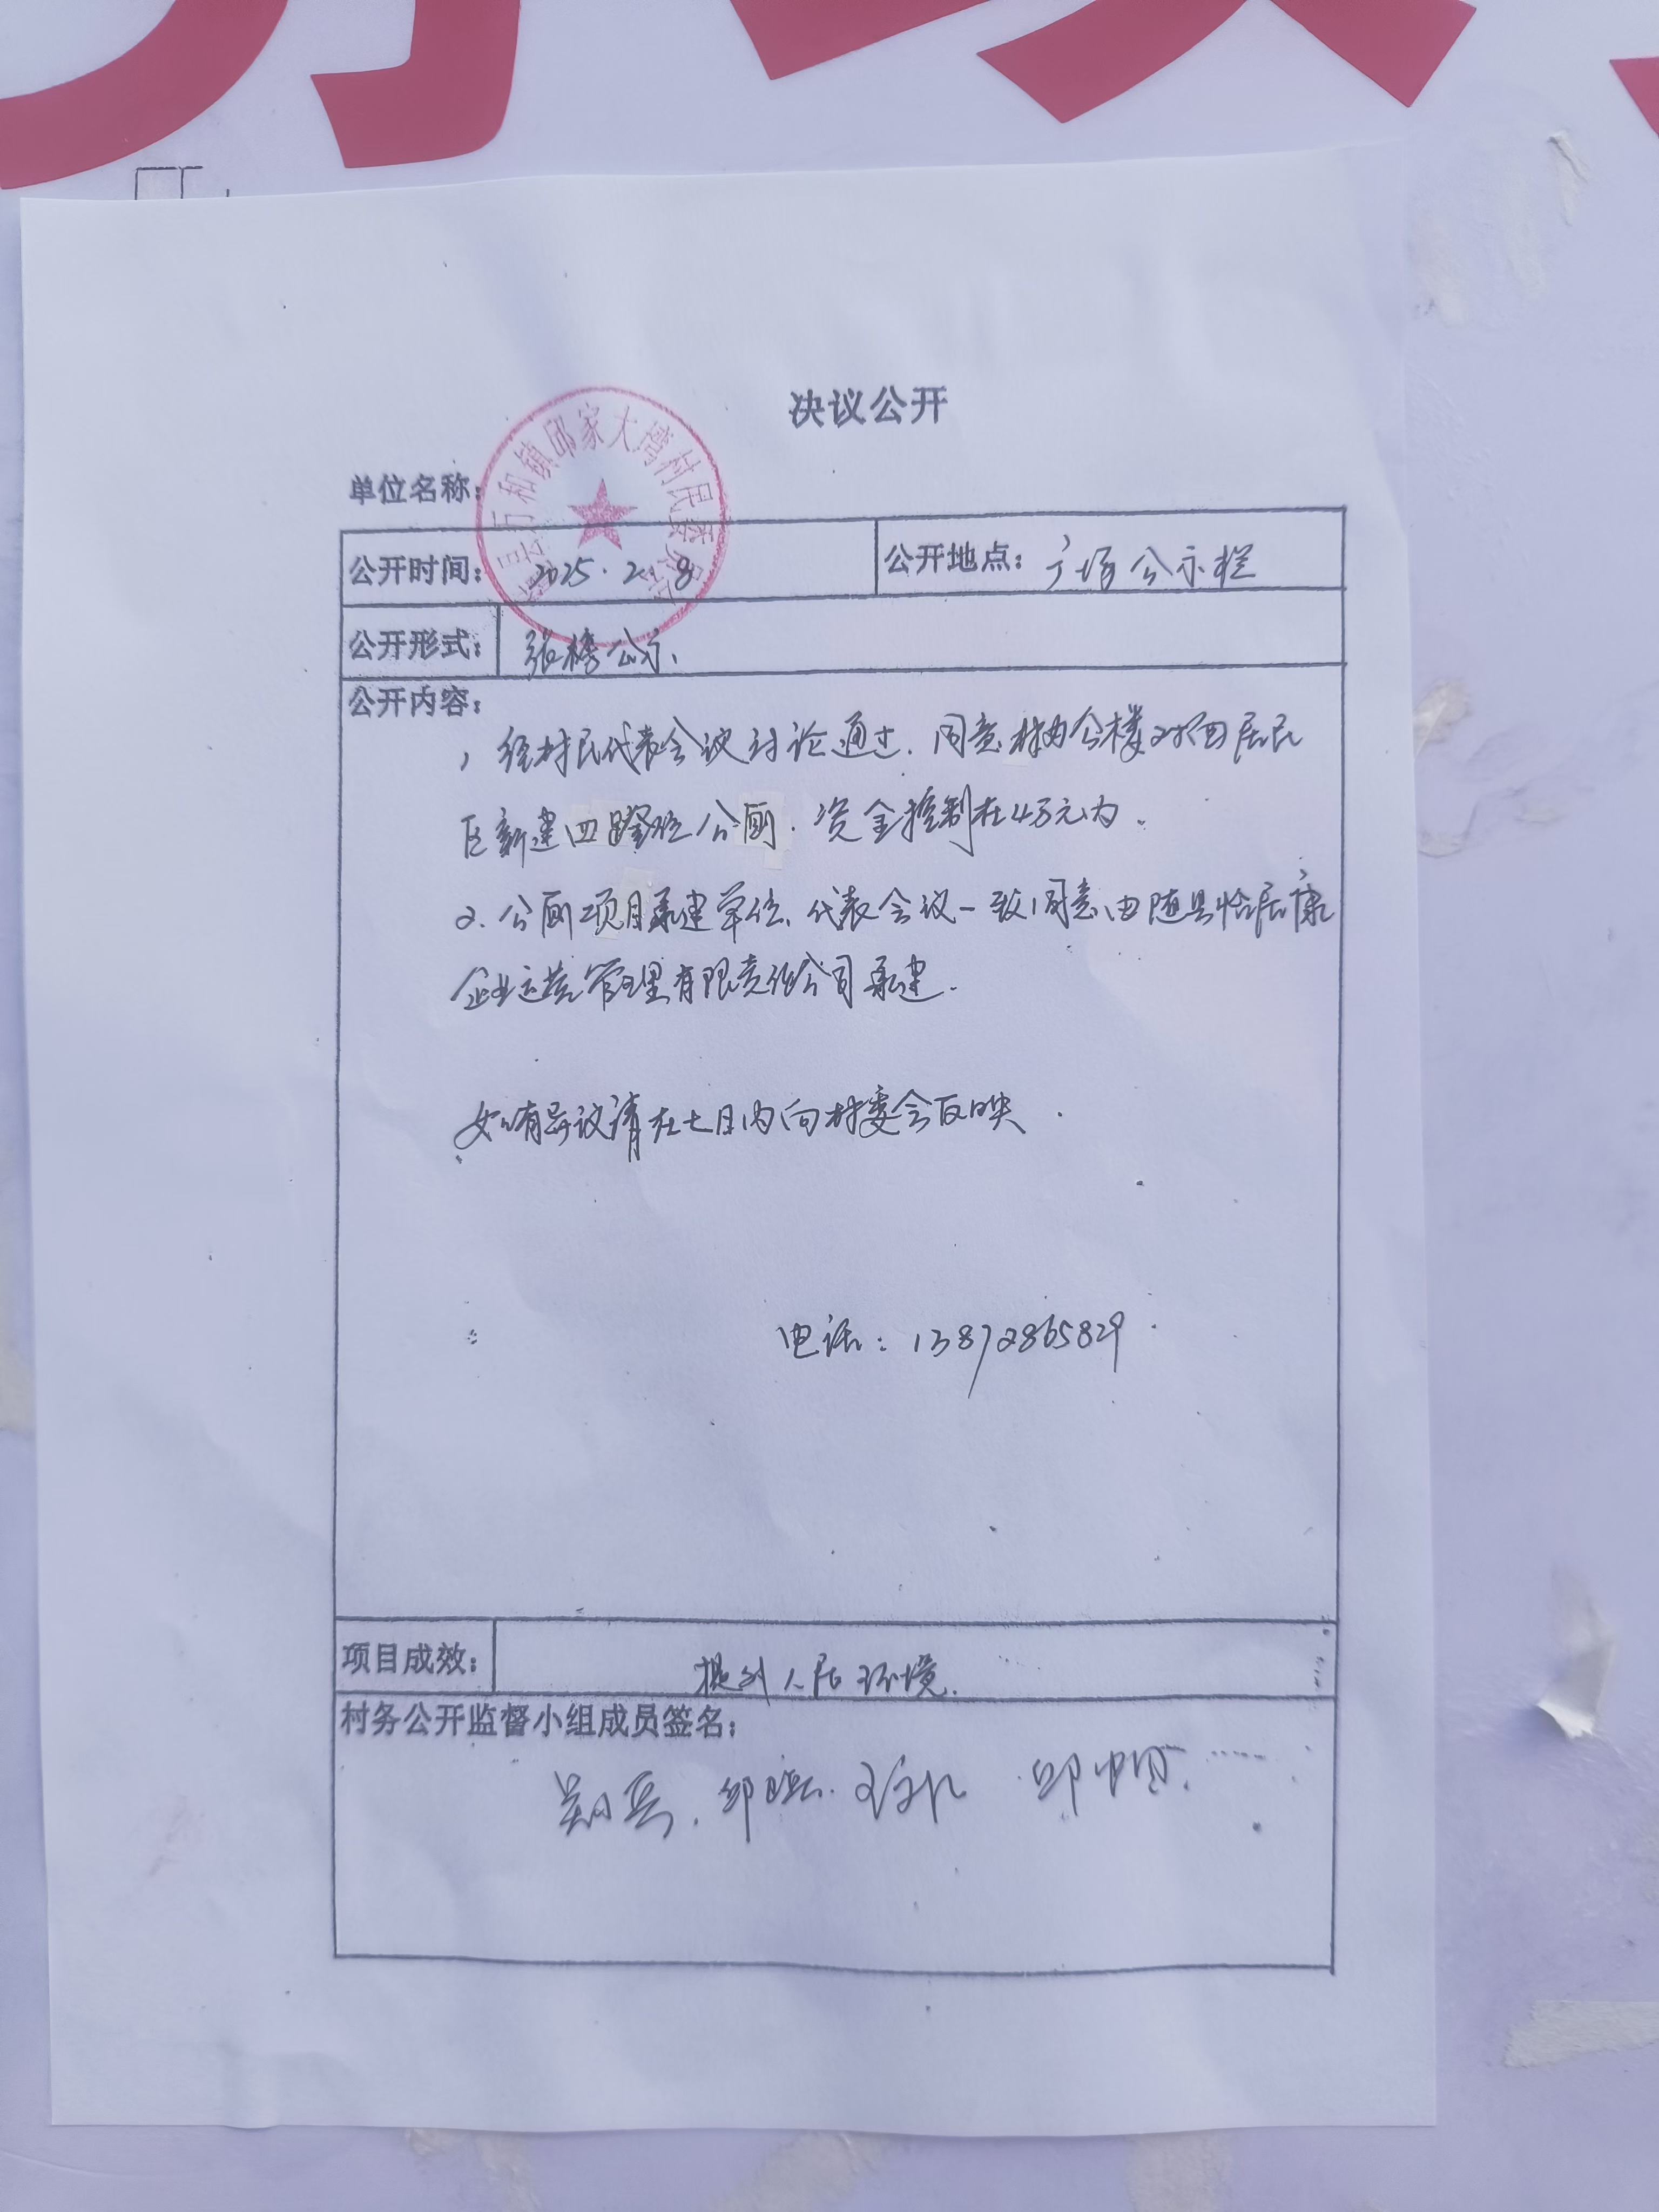 决议公开
单位名称：
随县万和镇邱家大湾村民委员会
公开时间： 2025.2.18 公开地点：广场公示栏
公开形式： 张榜公示
公开内容：
1 经村民代表会议讨论通过.同意村办公楼对面居民
区新建四蹲位公厕.资金控制在4万元内.
2.公厕项目承建单位、代表会议一致同意由随县怡居康
企业运营管理有限责任公司承建.
如有异议请在七日内向村委会反映.
电话：13872865829
项目成效： 提升人居环境.
村务公开监督小组成员签名：